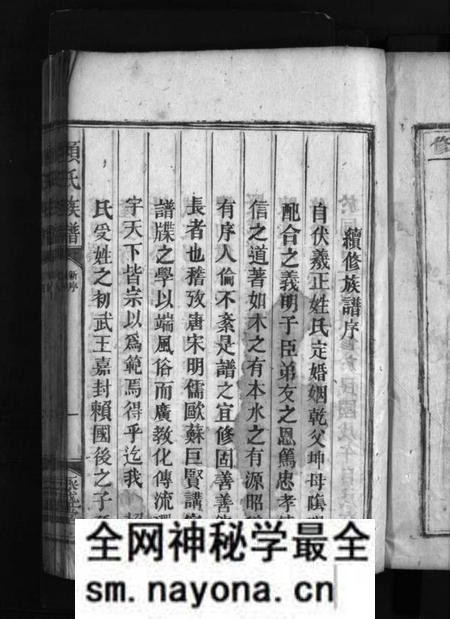 續修族譜序
自伏羲正姓氏定婚姻乾父坤母
配合之義明子臣弟友之恩篤忠孝
信之道著如木之有本水之有源昭
有序人倫不紊是譜之宜修固善善
長者也稽攷唐宋明儒歐蘇巨賢講
譜牒之學以端風俗而廣教化傳流
宇天下皆宗以爲範焉得乎迄我
氏受姓之初武王嘉封賴國後之子
賴氏族譜
新序
一
修
全网神秘学最全
sm.nayona.cn